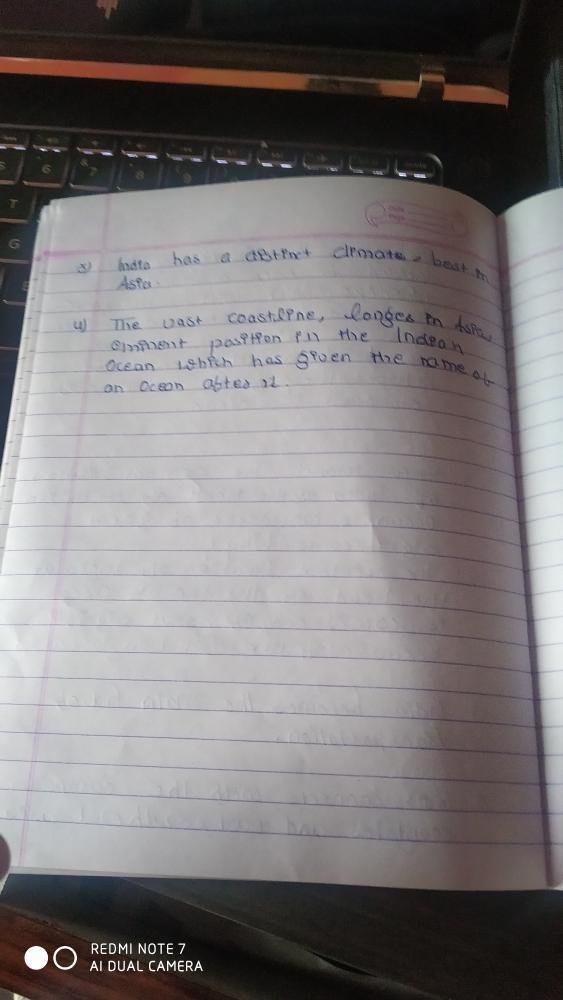 Date
Page
3) India has a distinct climate, best in
Asia.
4) The vast coastline, longes in Asia,
eminent position in the Indean
Ocean which has given the name of
an Ocean after it.
REDMI NOTE 7
AI DUAL CAMERA